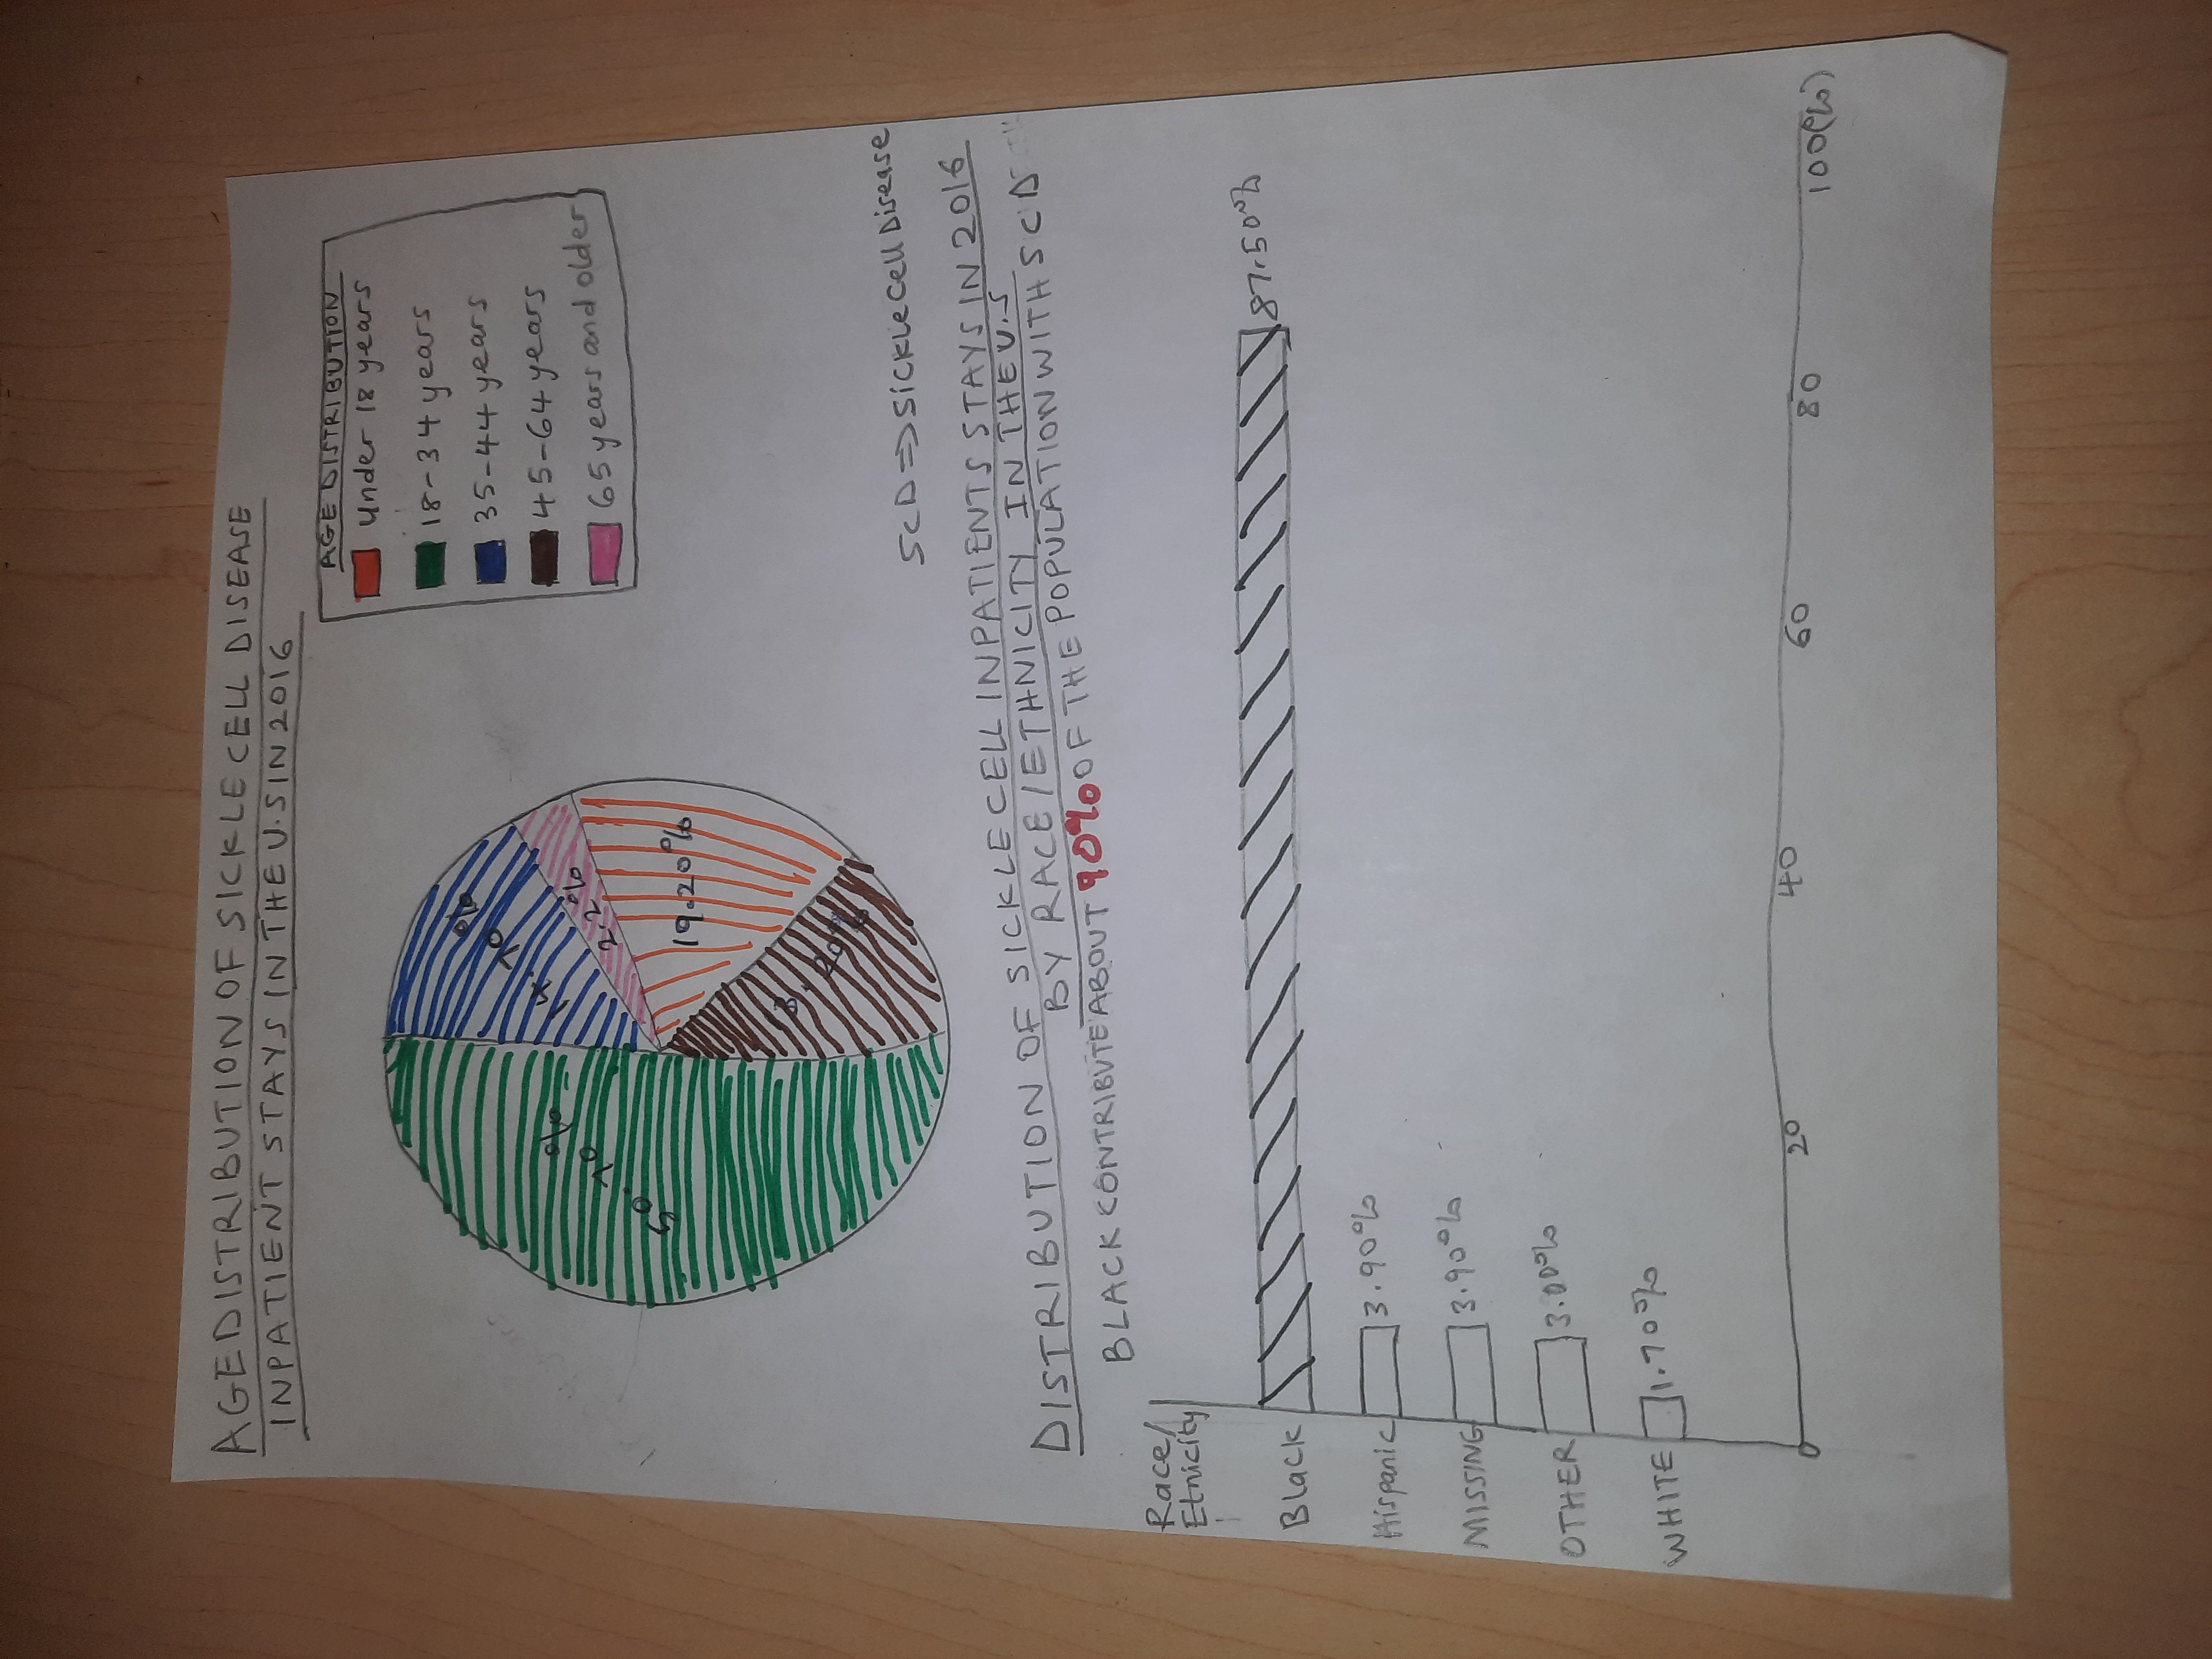 AGE DISTRIBUTION OF SICKLE CELL DISEASE
INPATIENT STAYS IN THE U.S IN 2016
AGE DISTRIBUTION
under 18 years
18-34 years
35-44 years
45-64 years
65 years and older
14.70%
50.70%
2.2%
19.20%
13.20%
SCD => Sickle Cell Disease
DISTRIBUTION OF SICKLE CELL INPATIENTS STAYS IN 2016
BY RACE/ETHNICITY IN THE U.S
BLACK CONTRIBUTE ABOUT 90% OF THE POPULATION WITH SCD
Race/
Etnicity
Black 87.50%
Hispanic 3.90%
MISSING 3.90%
OTHER 3.00%
WHITE 1.70%
0 20 40 60 80 100(%)